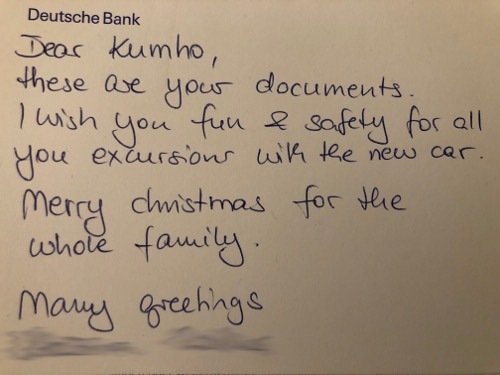 Deutsche Bank
Dear Kumho,
these are your documents.
I wish you fun & safety for all
you excursions with the new car.
Merry christmas for the
whole family.
Many greetings